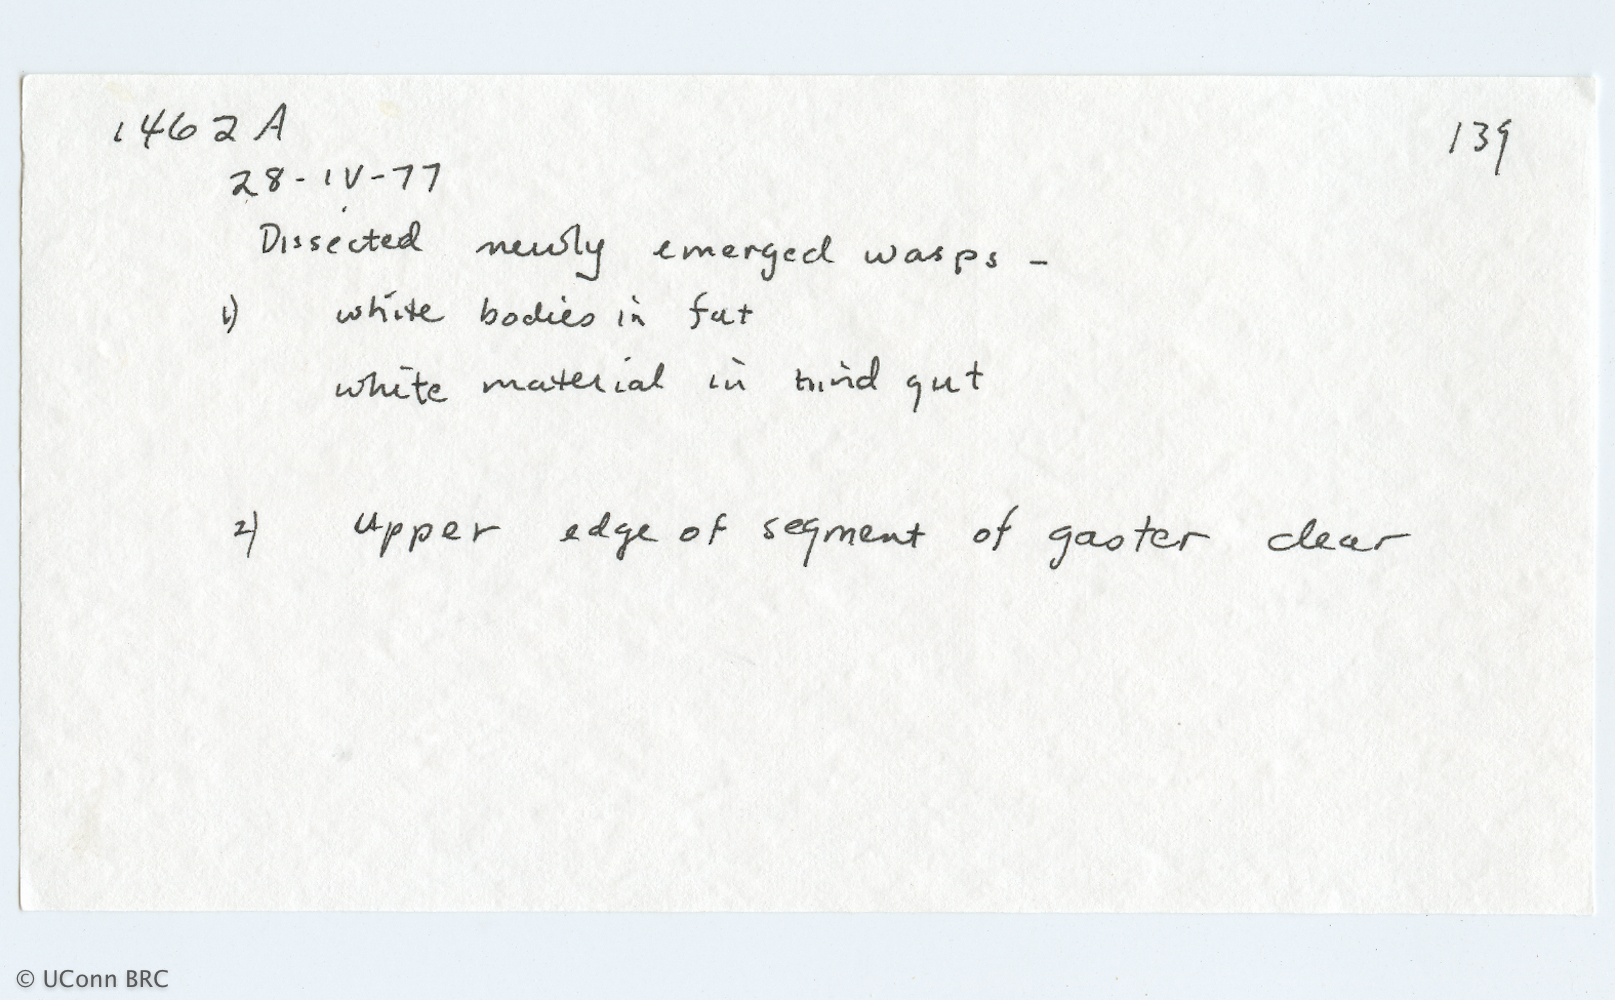 1462A 139
28-IV-77
Dissected newly emerged wasps -
1) white bodies in fat
white material in hind gut
2) upper edge of segment of gaster clear
© UConn BRC